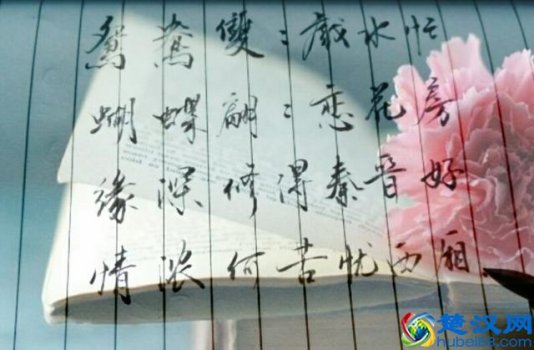 鸳鸯雙：戲水忙
蝴蝶翩：恋花房
缘深修得秦晋好
情浓何苦忧西厢
楚汉网
hubei88.com